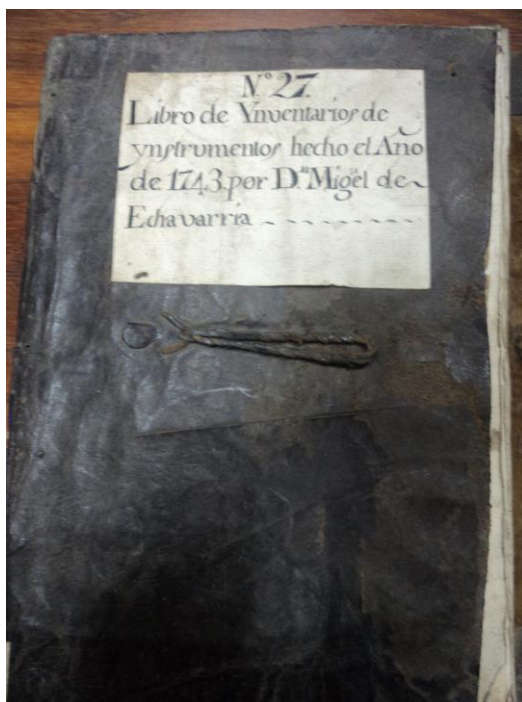 N.º 27.
Libro de Ynventarios de
ynstrumentos hecho el Año
de 1743 por D.ⁿ Migˡ de
Echavarria